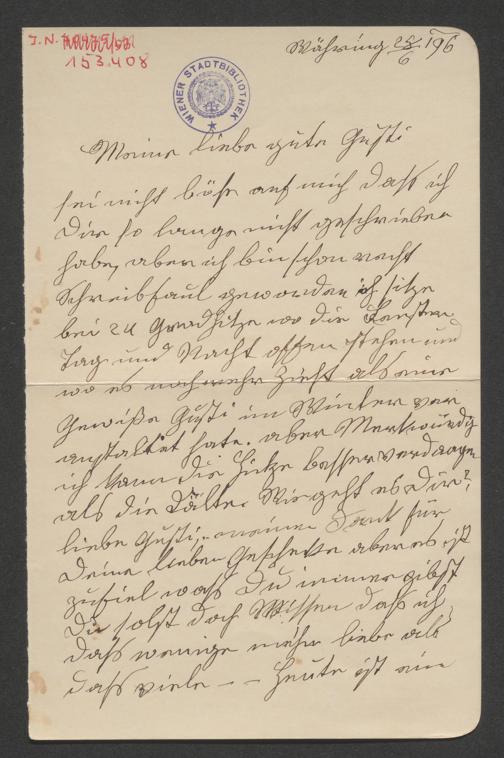 J. N.
153.408
Währing 25/6 196
WIENER STADTBIBLIOTHEK
Meine liebe gute Gusti
sei nicht böse auf mich daß ich
Dir so lange nicht geschrieben
habe, aber ich bin schon recht
Schreibfaul geworden ich sitze
bei 24 Gradhitze wo die Fenster
Tag und Nacht offen stehen und
wo es noch mehr zieht als eine
Gewiße Gusti im Winter ver
anstaltet hate. aber Merkwürdig
ich kann die Hitze besser verdragen
als die Kälte. Wie geht es Dir?
liebe Gusti, meinen Dank für
Deine lieben Geschenke aber es ist
zufiel was Du immer gibst
Du solst doch Wissen daß ich
daß wenige mehr liebe als
daß viele – – Heute ist ein